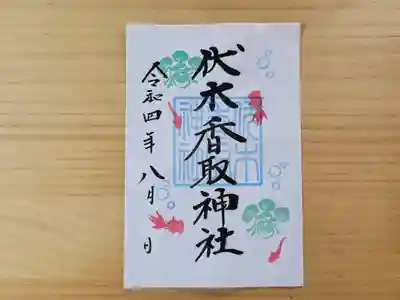 伏木香取神社
令和四年八月 日